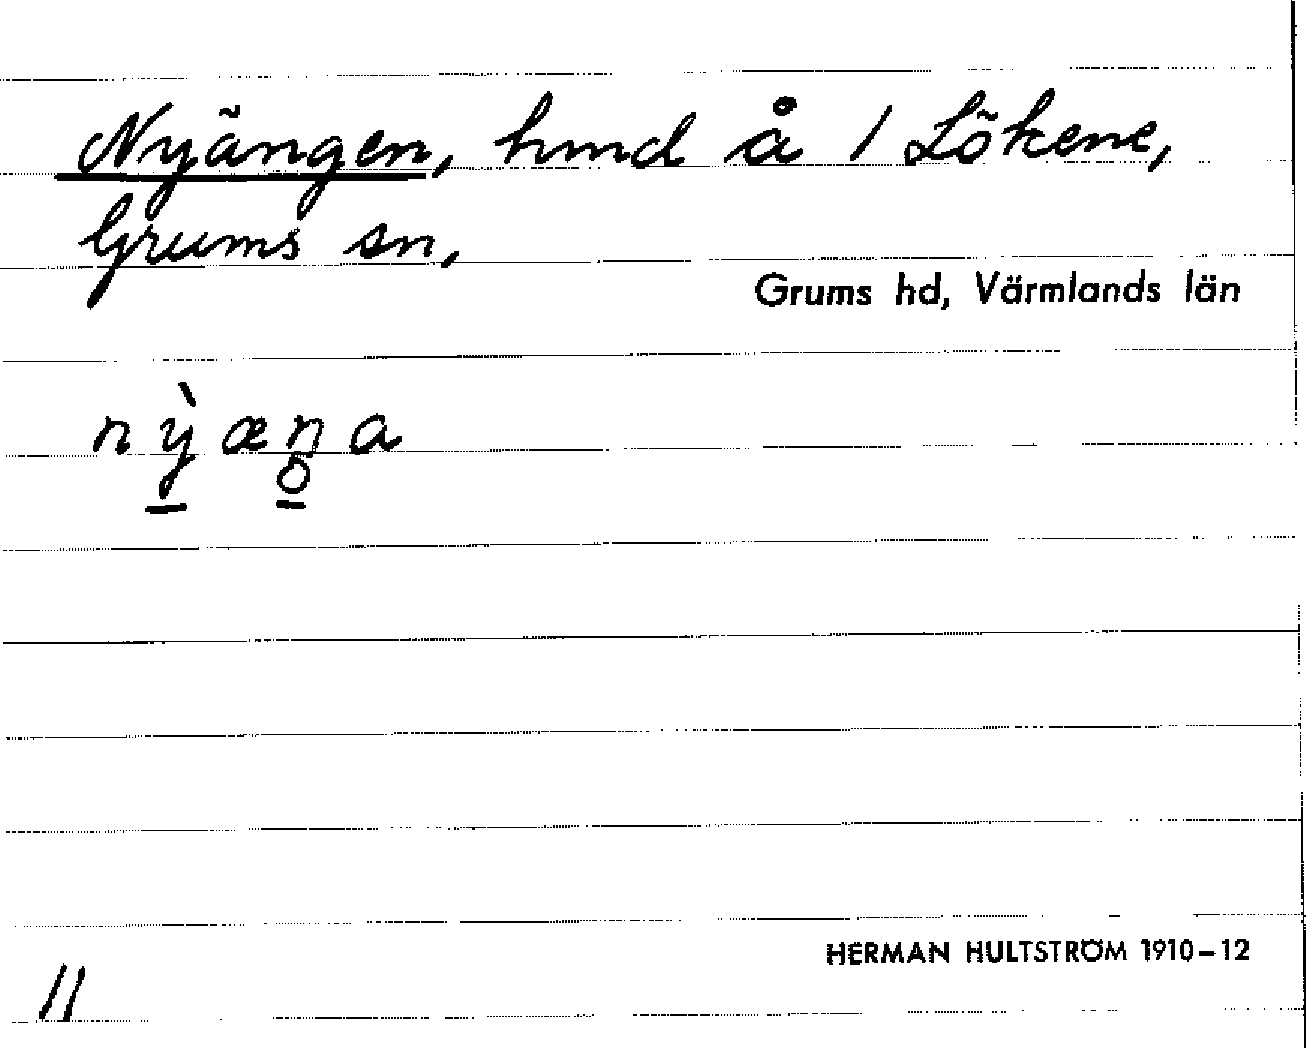 Nyängen, hmd å 1 Lökene,
Grums sn,
Grums hd, Värmlands län
nỳæŋa
HERMAN HULTSTRÖM 1910-12
11